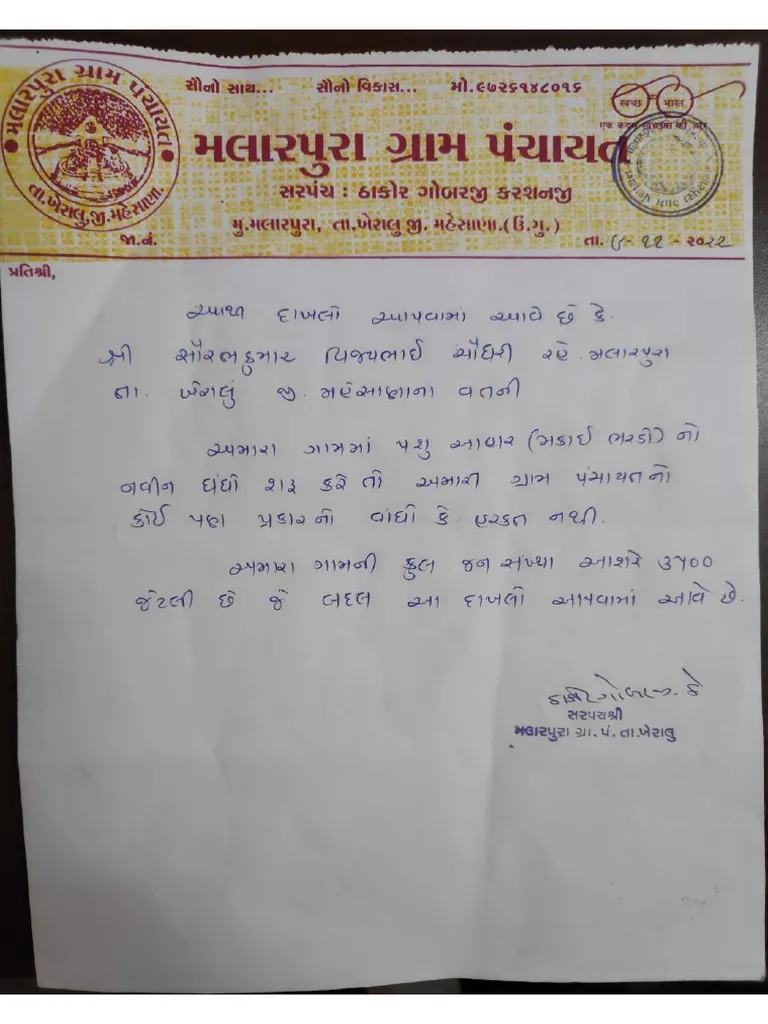 મલારપુરા ગ્રામ પંચાયત
તા.ખેરાલુ,જી.મહેસાણા.
સૌનો સાથ... સૌનો વિકાસ... મો.૯૭૨૬૧૪૮૦૧૬
સ્વચ્છ ભારત
एक कदम स्वच्छता की ओर
મલારપુરા ગ્રામ પંચાયત
સરપંચ : ઠાકોર ગોબરજી કરશનજી
મુ.મલારપુરા, તા.ખેરાલુ જી. મહેસાણા.(ઉ.ગુ.)
જા.નં. તા. ૯-૧૧-૨૦૨૨
પ્રતિશ્રી,
આથી દાખલો આપવામાં આવે છે કે.
શ્રી સૌરભકુમાર વિજયભાઈ ચૌધરી રહે. મલારપુરા
તા. ખેરાલું જી. મહેસાણાના વતની
અમારા ગામમાં પશુ આહાર (મકાઈ ભરડો) નો
નવીન ધંધો શરૂ કરે તો અમારી ગ્રામ પંચાયતનો
કોઈ પણ પ્રકારનો વાંધો કે હરકત નથી.
અમારા ગામની કુલ જન સંખ્યા આશરે ૩૫૦૦
જેટલી છે જે બદલ આ દાખલો આપવામાં આવે છે.
સરપચશ્રી
મલારપુરા ગ્રા.પં.તા.ખેરાલુ